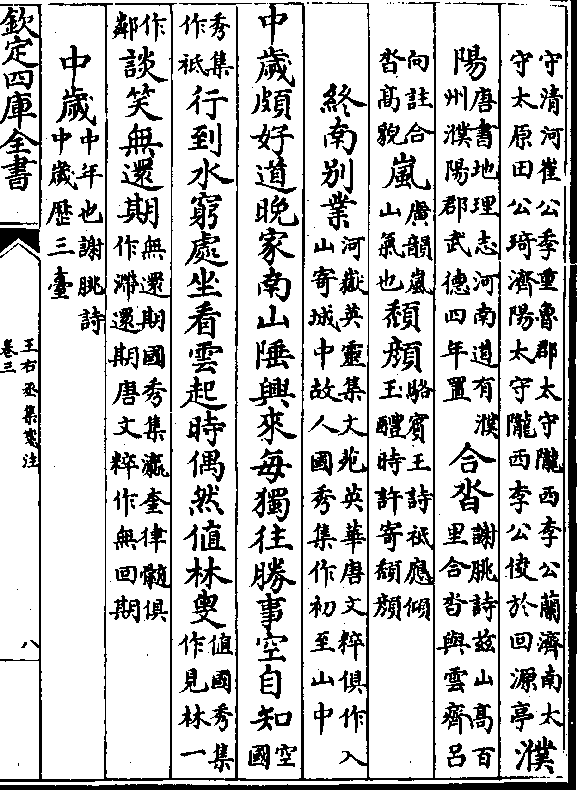 守清河崔公季重魯郡太守隴西李公蘭濟南太
守太原田公琦濟陽太守隴西李公伎於回源亭
濮
陽
唐書地理志河南道有濮
州濮陽郡武德四年置
合沓
謝朓詩兹山髙百
里合沓與雲齊吕
向註合
沓髙貌
嵐
廣韻嵐
山氣也
頽顔
駱賓王詩祇應傾
玉醴時許寄頽顔
終南别業
河嶽英靈集文苑英華唐文粹俱作入
山寄城中故人國秀集作初至山中
中歲頗好道晩家南山陲興來每獨往勝事空自知
空
國
秀集
作祇
行到水窮處坐看雲起時偶然值林叟
值國秀集
作見林一
作
鄰
談笑無還期
無還期國秀集瀛奎律髓俱
作滯還期唐文粹作無回期
中歲
中年也謝朓詩
中歲歴三臺
欽定四庫全書
王右丞集箋注
卷三
八